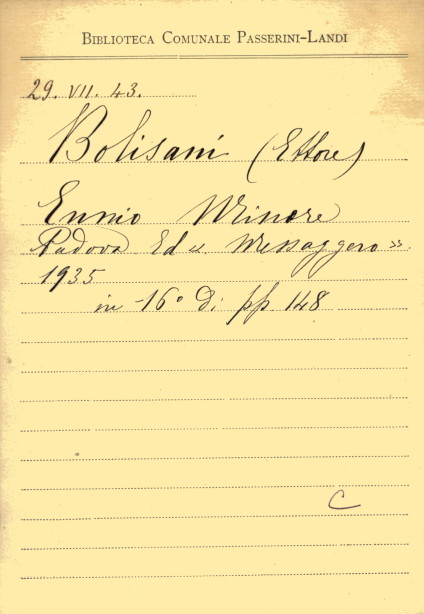 BIBLIOTECA COMUNALE PASSERINI-LANDI
29. VII. 43.
Bolisani (Ettore)
Ennio Minore
Padova Ed «Messaggero».
1935
in -16° di pp 148
C